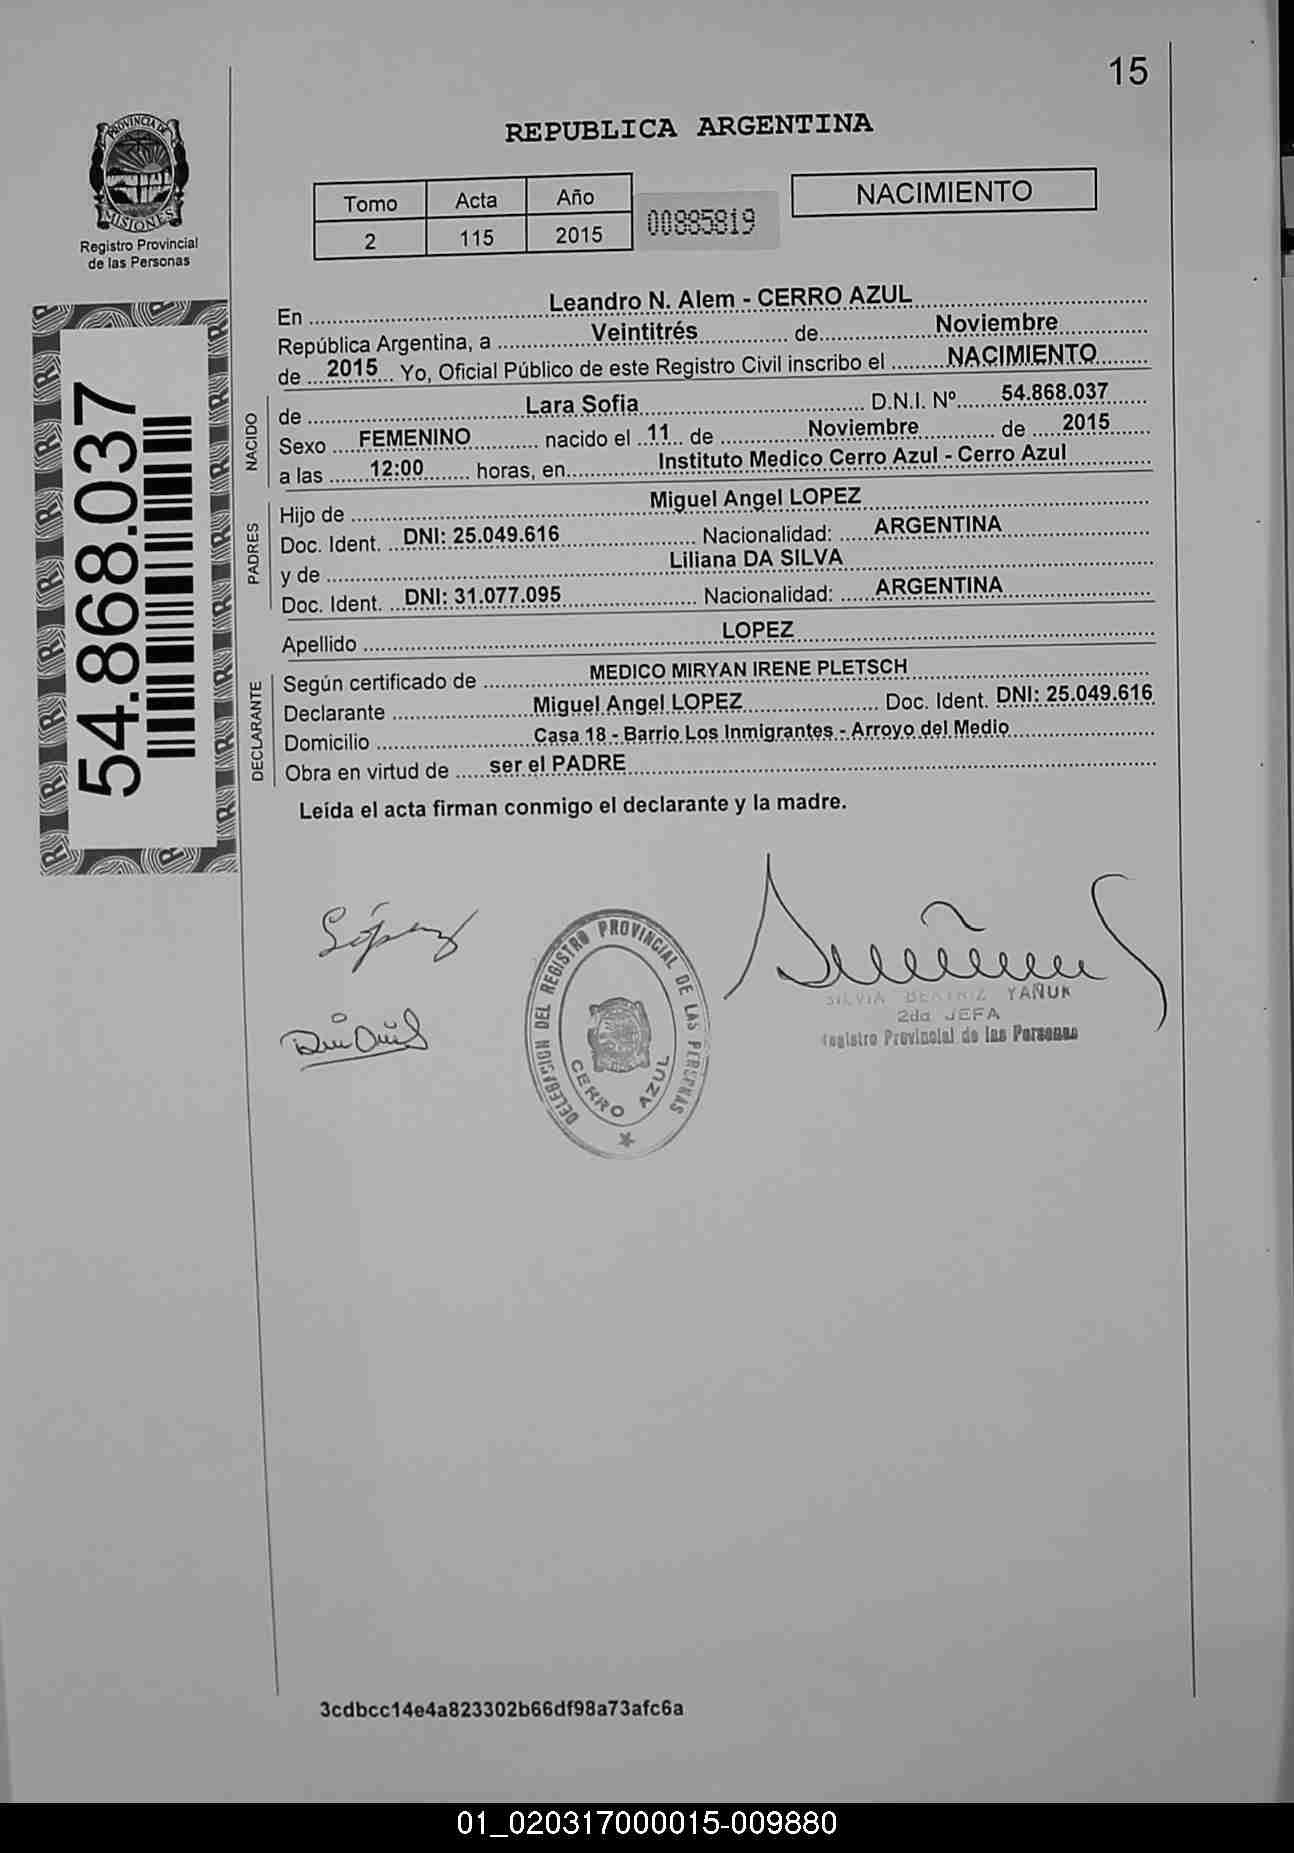 15
PROVINCIA DE
MISIONES
Registro Provincial
de las Personas
REPUBLICA ARGENTINA
Tomo Acta Año
2 115 2015
00885819
NACIMIENTO
54.868.037
En Leandro N. Alem - CERRO AZUL
República Argentina, a Veintitrés de Noviembre
de 2015 Yo, Oficial Público de este Registro Civil inscribo el NACIMIENTO
NACIDO
de Lara Sofia D.N.I. Nº 54.868.037
Sexo FEMENINO nacido el 11 de Noviembre de 2015
a las 12:00 horas, en Instituto Medico Cerro Azul - Cerro Azul
PADRES
Hijo de Miguel Angel LOPEZ
Doc. Ident. DNI: 25.049.616 Nacionalidad: ARGENTINA
y de Liliana DA SILVA
Doc. Ident. DNI: 31.077.095 Nacionalidad: ARGENTINA
Apellido LOPEZ
DECLARANTE
Según certificado de MEDICO MIRYAN IRENE PLETSCH
Declarante Miguel Angel LOPEZ Doc. Ident. DNI: 25.049.616
Domicilio Casa 18 - Barrio Los Inmigrantes - Arroyo del Medio
Obra en virtud de ser el PADRE
Leída el acta firman conmigo el declarante y la madre.
López
DELEGACION DEL REGISTRO PROVINCIAL DE LAS PERSONAS
CERRO AZUL
SILVIA BEATRIZ YAÑUK
2da JEFA
Registro Provincial de las Personas
3cdbcc14e4a823302b66df98a73afc6a
01_020317000015-009880